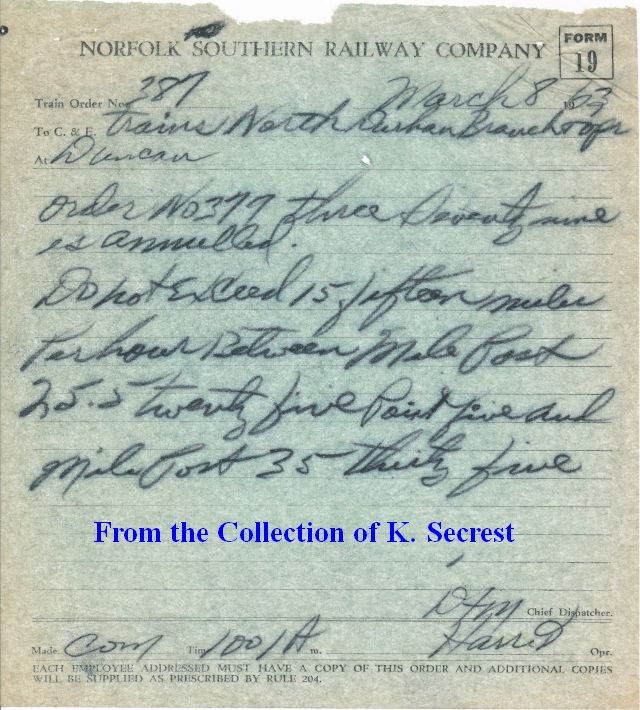 NORFOLK SOUTHERN RAILWAY COMPANY
FORM 19
Train Order No. 387 March 8 1963
To C. & E. trains North Durham Branch & opr
At Duncan
Order No 379 three Seventy nine
is annulled.
Do not Exceed 15 fifteen miles
Per hour Between Mile Post
25.5 twenty five Point five and
Mile Post 35 thirty five
From the Collection of K. Secrest
Chief Dispatcher.
Made Com Time 1001A m. Harris Opr.
EACH EMPLOYEE ADDRESSED MUST HAVE A COPY OF THIS ORDER AND ADDITIONAL COPIES
WILL BE SUPPLIED AS PRESCRIBED BY RULE 204.